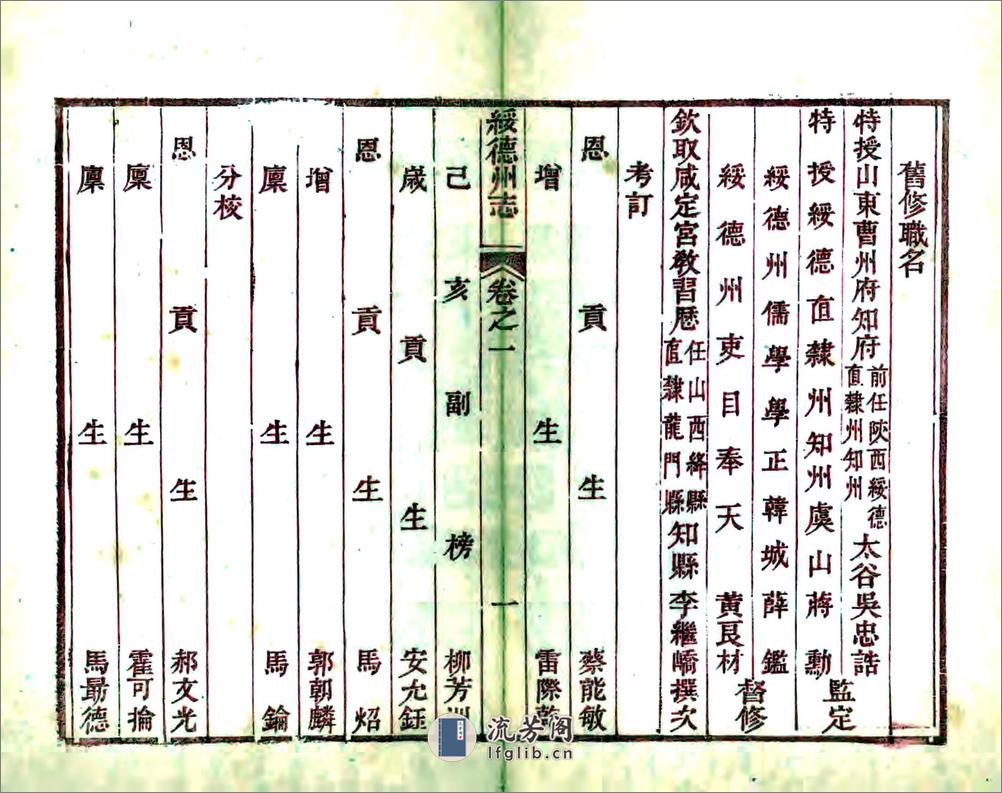 舊修職名
特授山東曹州府知府前任陝西綏德直隸州知州太谷吳忠誥
監定
特授綏德直隸州知州虞山蔣勳
綏德州儒學學正韓城薛鑑
督修
綏德州吏目奉天黃艮材
欽取咸定宮教習歷任山西絳縣直隸龍門縣知縣李繼嶠撰次
考訂
恩貢生蔡能敏
增生雷際
綏德州志卷之一
一
己亥副榜柳芳
歲貢生安允鈺
恩貢生馬炤
增生郭朝麟
廩生馬鑰
分校
恩貢生郝文光
廩生霍可掄
廩生馬最德
流芳閣
lfglib.cn